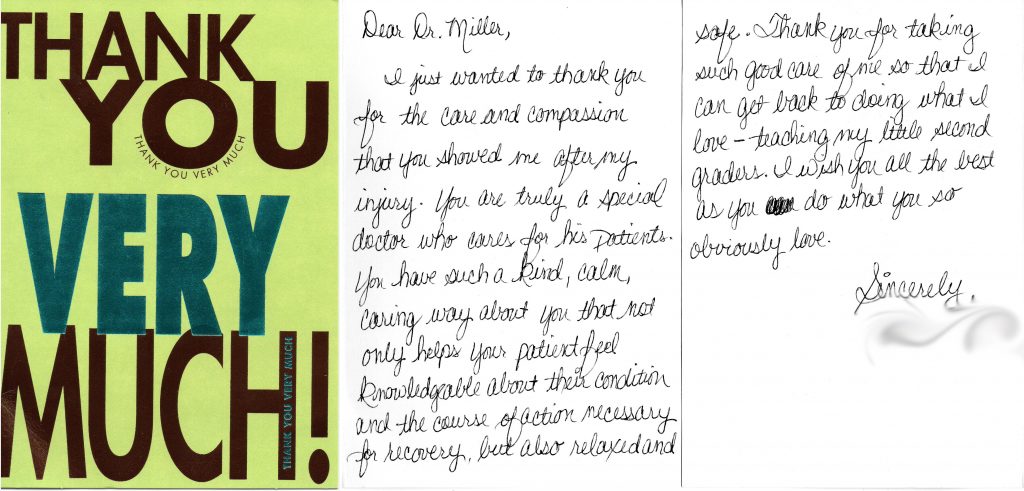 THANK
YOU
THANK YOU VERY MUCH
VERY
MUCH!
THANK YOU VERY MUCH
Dear Dr. Miller,
I just wanted to thank you
for the care and compassion
that you showed me after my
injury. You are truly a special
doctor who cares for his patients.
You have such a kind, calm,
caring way about you that not
only helps your patient feel
knowledgeable about their condition
and the course of action necessary
for recovery, but also relaxed and
safe. Thank you for taking
such good care of me so that I
can get back to doing what I
love – teaching my little second
graders. I wish you all the best
as you do what you so
obviously love.
Sincerely,